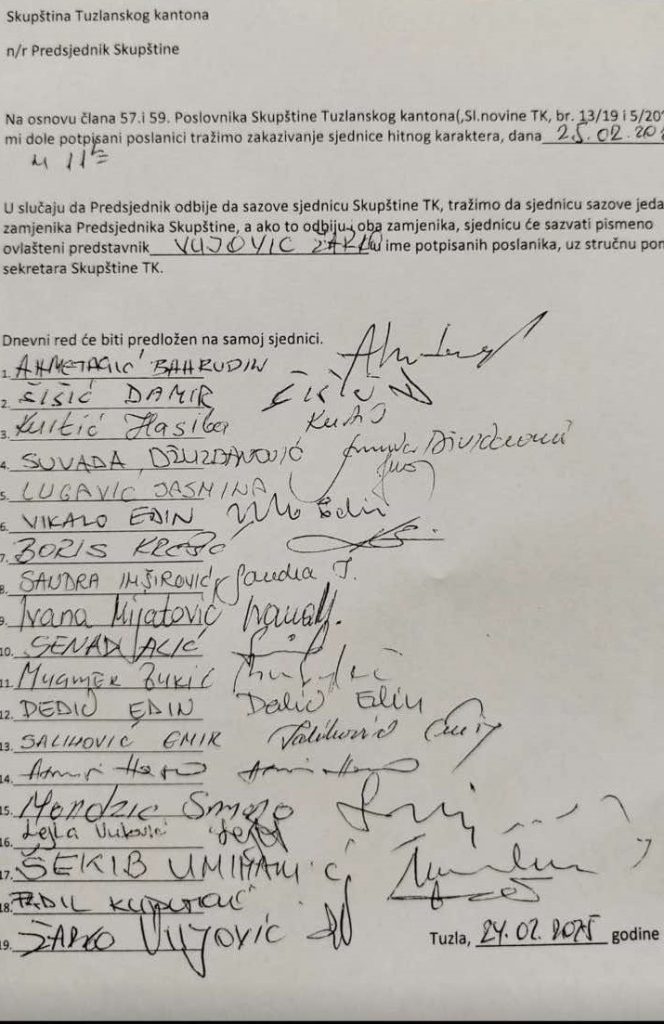 Skupština Tuzlanskog kantona
n/r Predsjednik Skupštine
Na osnovu člana 57.i 59. Poslovnika Skupštine Tuzlanskog kantona(,Sl.novine TK, br. 13/19 i 5/20
mi dole potpisani poslanici tražimo zakazivanje sjednice hitnog karaktera, dana 25.02.20
u 11
U slučaju da Predsjednik odbije da sazove sjednicu Skupštine TK, tražimo da sjednicu sazove jeda
zamjenika Predsjednika Skupštine, a ako to odbiju oba zamjenika, sjednicu će sazvati pismeno
ovlašteni predstavnik VUJOVIĆ ŽARKO u ime potpisanih poslanika, uz stručnu pom
sekretara Skupštine TK.
Dnevni red će biti predložen na samoj sjednici.
1. AHMETAGIĆ BAHRUDIN
2. ŠIŠIĆ DAMIR
3. Kurtić Hasiba
4. SUVADA DŽUZDANOVIĆ
5. LUGAVIĆ JASMINA
6. VIKALO EDIN
7. BORIS KREŠIĆ
8. SANDRA IMŠIROVIĆ Sandra I.
9. Ivana Mijatović Ivana M.
10. SENAD ALIĆ
11. MUAMER ZUKIĆ
12. DEDIĆ EDIN Dedić Edin
13. SALIHOVIĆ EMIR Salihović Emir
14.
15. Mandžić Smajo
16. Lejla Vuković Lejla
17. ŠEKIB UMIHANIĆ
18. FADIL
19. ŽARKO VUJOVIĆ
Tuzla, 24.02.2025 godine